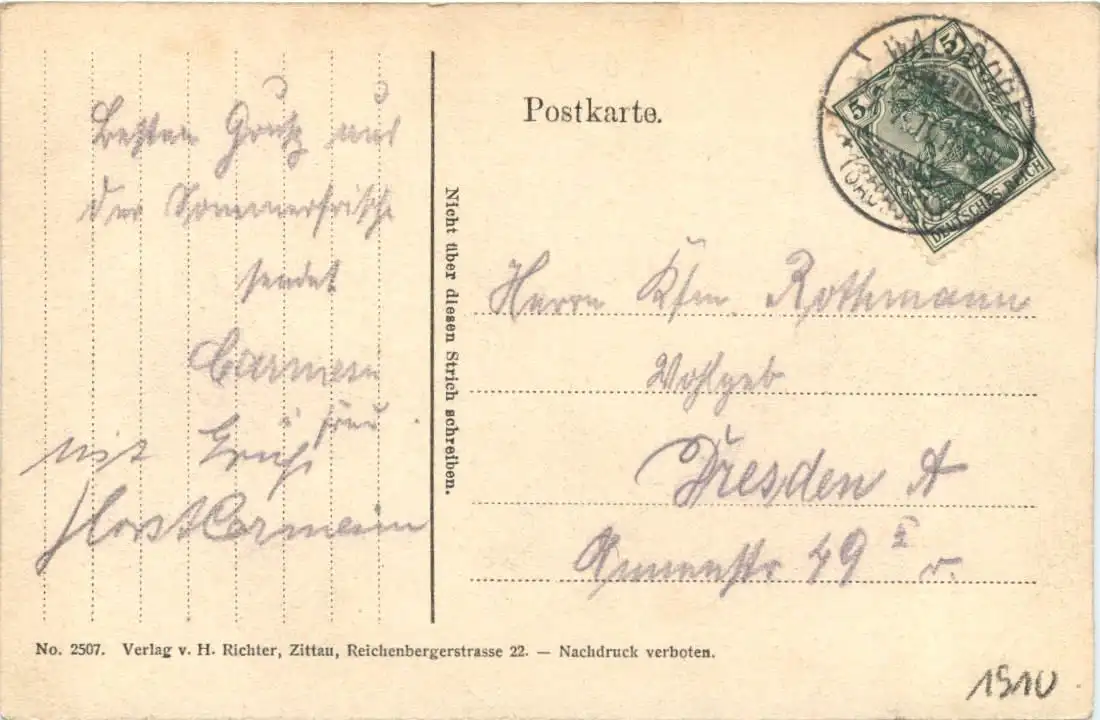 Postkarte.
5 5
DEUTSCHES REICH
Besten Gruß aus
der Sommerfrische
sendet
u. Frau
mit Gruß
Horst
Nicht über diesen Strich schreiben.
Herrn Kfm Rothmann
Wohlgeb
Dresden A
Annenstr 49 I r.
No. 2507. Verlag v. H. Richter, Zittau, Reichenbergerstrasse 22. — Nachdruck verboten.
1910